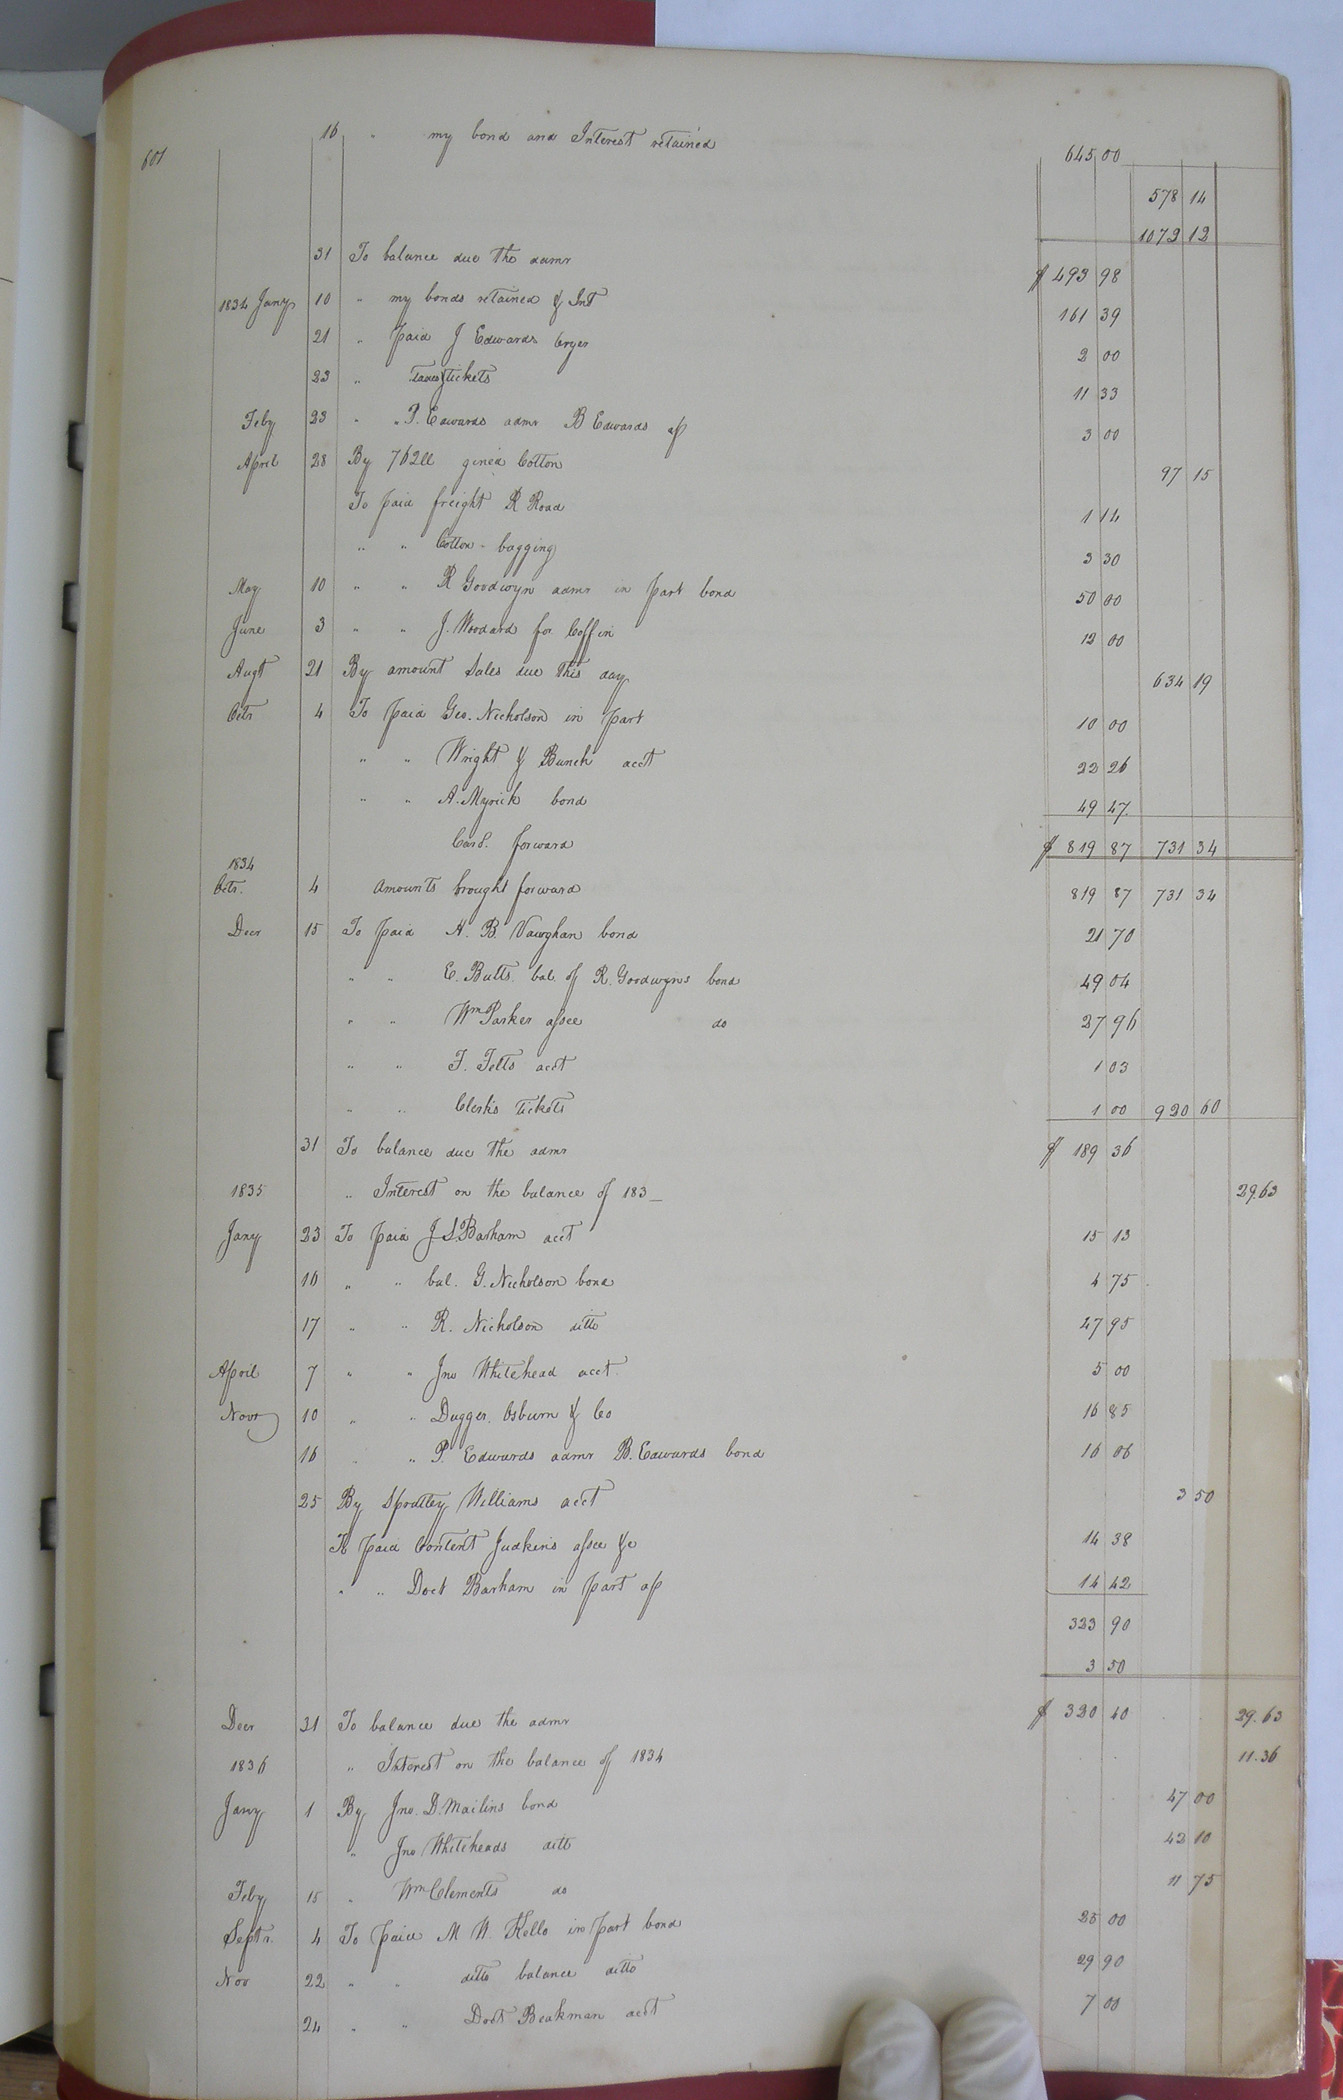 601 16 " my bond and Interest retained 645 00
578 14
1072 12
31 To balance due the admr $ 493 98
1834 Jany 10 " my bonds retained & Int 161 39
21 " paid J Edwards Cryer 2 00
23 " Taxes & tickets 11 33
Feby 23 " " P. Edwards admr B Edwards a/c 3 00
April 28 By 762 ll gined Cotton 97 15
To paid freight R Road 1 14
" " Cotton-bagging 3 30
May 10 " " R Goodwyn admr in part bond 50 00
June 3 " " J. Woodard for Coffin 12 00
Augt 21 By amount Sales due this day 634 19
Octr 4 To paid Geo. Nicholson in part 10 00
" " Wright & Bunch acct 22 26
" " A. Myrick bond 49 47
Card. forward $ 819 87 731 34
1834
Octr. 4 amounts brought forward 819 87 731 34
Decr 15 To paid H. B. Vaughan bond 21 70
" " E. Butts bal. of R. Goodwyns bond 49 04
" " Wm Parker assee do 27 96
" " F. Felts acct 1 03
" " Clerks tickets 1 00 920 60
31 To balance due the admr $ 189 36
1835 " Interest on the balance of 183_ 29.63
Jany 23 To paid J S. Barham acct 15 13
16 " " bal. G. Nicholson bond 4 75
17 " " R. Nicholson ditto 47 95
April 7 " " Jno Whitehead acct 5 00
Novr 10 " " Dugger, Osburn & Co 16 85
16 " " P. Edwards admr B. Edwards bond 16 06
25 By Spratley Williams acct 3 50
To paid Content Judkins assee &c 14 38
" " Doct Barham in part a/c 14 42
323 90
3 50
Decr 31 To balance due the admr $ 320 40 29.63
1836 " Interest on the balance of 1834 11.36
Jany 1 By Jno. D. Mailins bond 47 00
" Jno Whiteheads ditto 42 10
Feby 15 " Wm Clements do 11 75
Septr. 4 To paid M W. Kello in part bond 25 00
Nov 22 " " ditto balance ditto 29 90
24 " " Doct Beakman acct 7 00